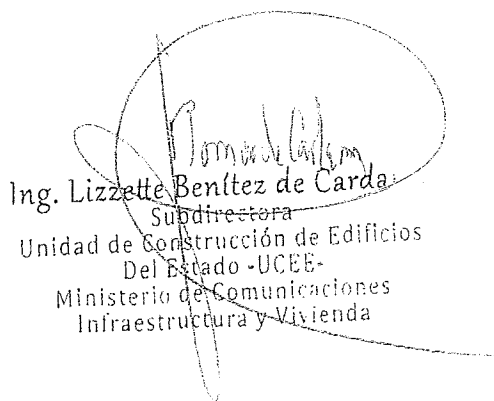 Ing. Lizzette Benítez de Carda
Subdirectora
Unidad de Construcción de Edificios
Del Estado -UCEE-
Ministerio de Comunicaciones
Infraestructura y Vivienda